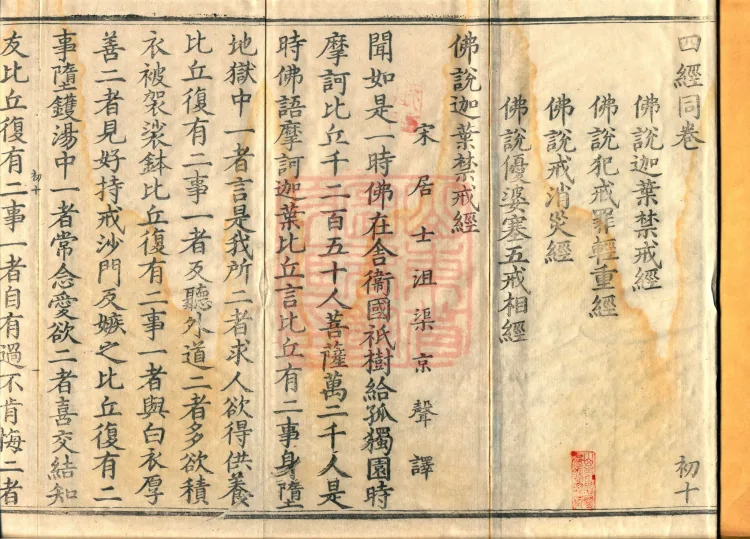 四經同卷 初十
佛說迦葉禁戒經
佛說犯戒罪輕重經
佛說戒消災經
佛說優婆塞五戒相經
佛說迦葉禁戒經
宋居士沮渠京聲譯
聞如是一時佛在舍衞國祇樹給孤獨園時
摩訶比丘千二百五十人菩薩萬二千人是
時佛語摩訶迦葉比丘言比丘有二事身墮
地獄中一者言是我所二者求人欲得供養
比丘復有二事一者反聽外道二者多欲積
衣被袈裟鉢比丘復有二事一者與白衣厚
善二者見好持戒沙門反嫉之比丘復有二
事墮鑊湯中一者常念愛欲二者喜交結知
初十
友比丘復有二事一者自有過不肯悔二者